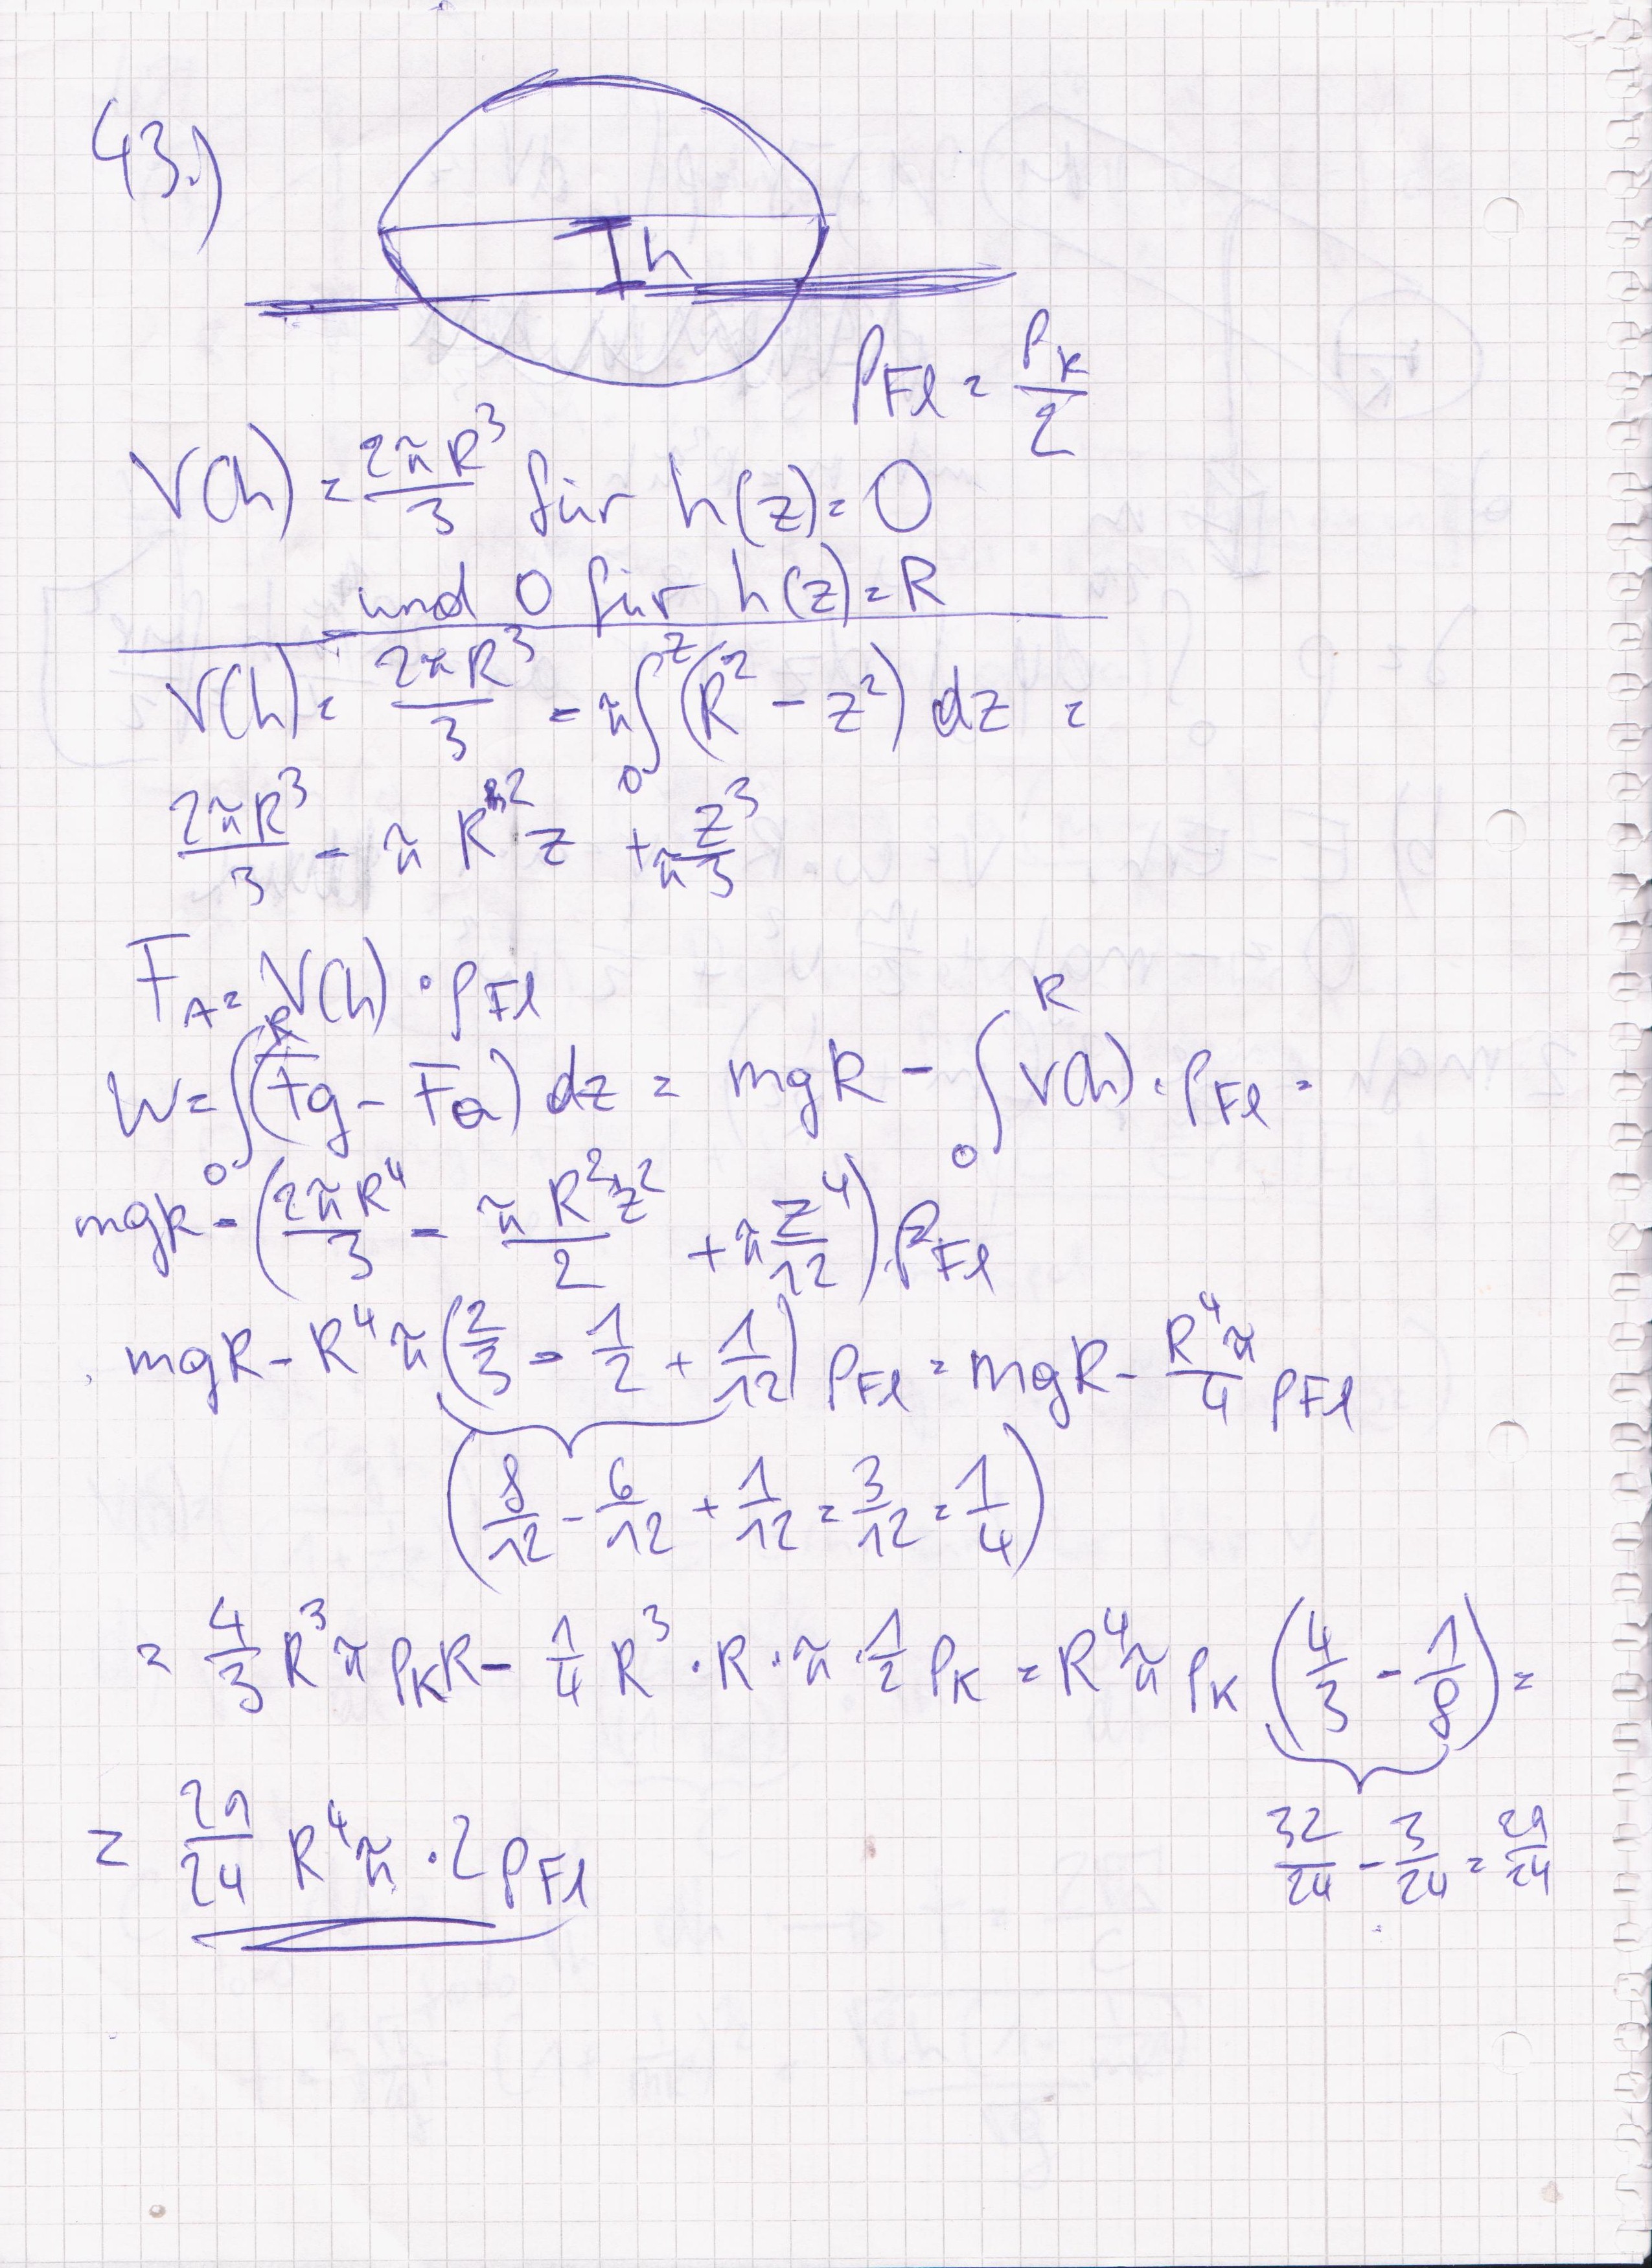 43.)
h
ρ_Fl = ρ_K/2
V(h) = 2πR³/3 für h(z) = 0
und 0 für h(z) = R
V(h) = 2πR³/3 - π∫₀^z (R² - z²) dz =
2πR³/3 - πR²z + π z³/3
F_A = V(h) · ρ_Fl
W = ∫₀^R (Fg - Fa) dz = mgR - ∫₀^R V(h) · ρ_Fl =
mgR - (2πR⁴/3 - πR²z²/2 + π z⁴/12) · ρ_Fl
mgR - R⁴π (2/3 - 1/2 + 1/12) ρ_Fl = mgR - R⁴π/4 ρ_Fl
(8/12 - 6/12 + 1/12 = 3/12 = 1/4)
= 4/3 R³π ρ_K R - 1/4 R³ · R · π · 1/2 ρ_K = R⁴π ρ_K (4/3 - 1/8) =
32/24 - 3/24 = 29/24
= 29/24 R⁴π · 2ρ_Fl